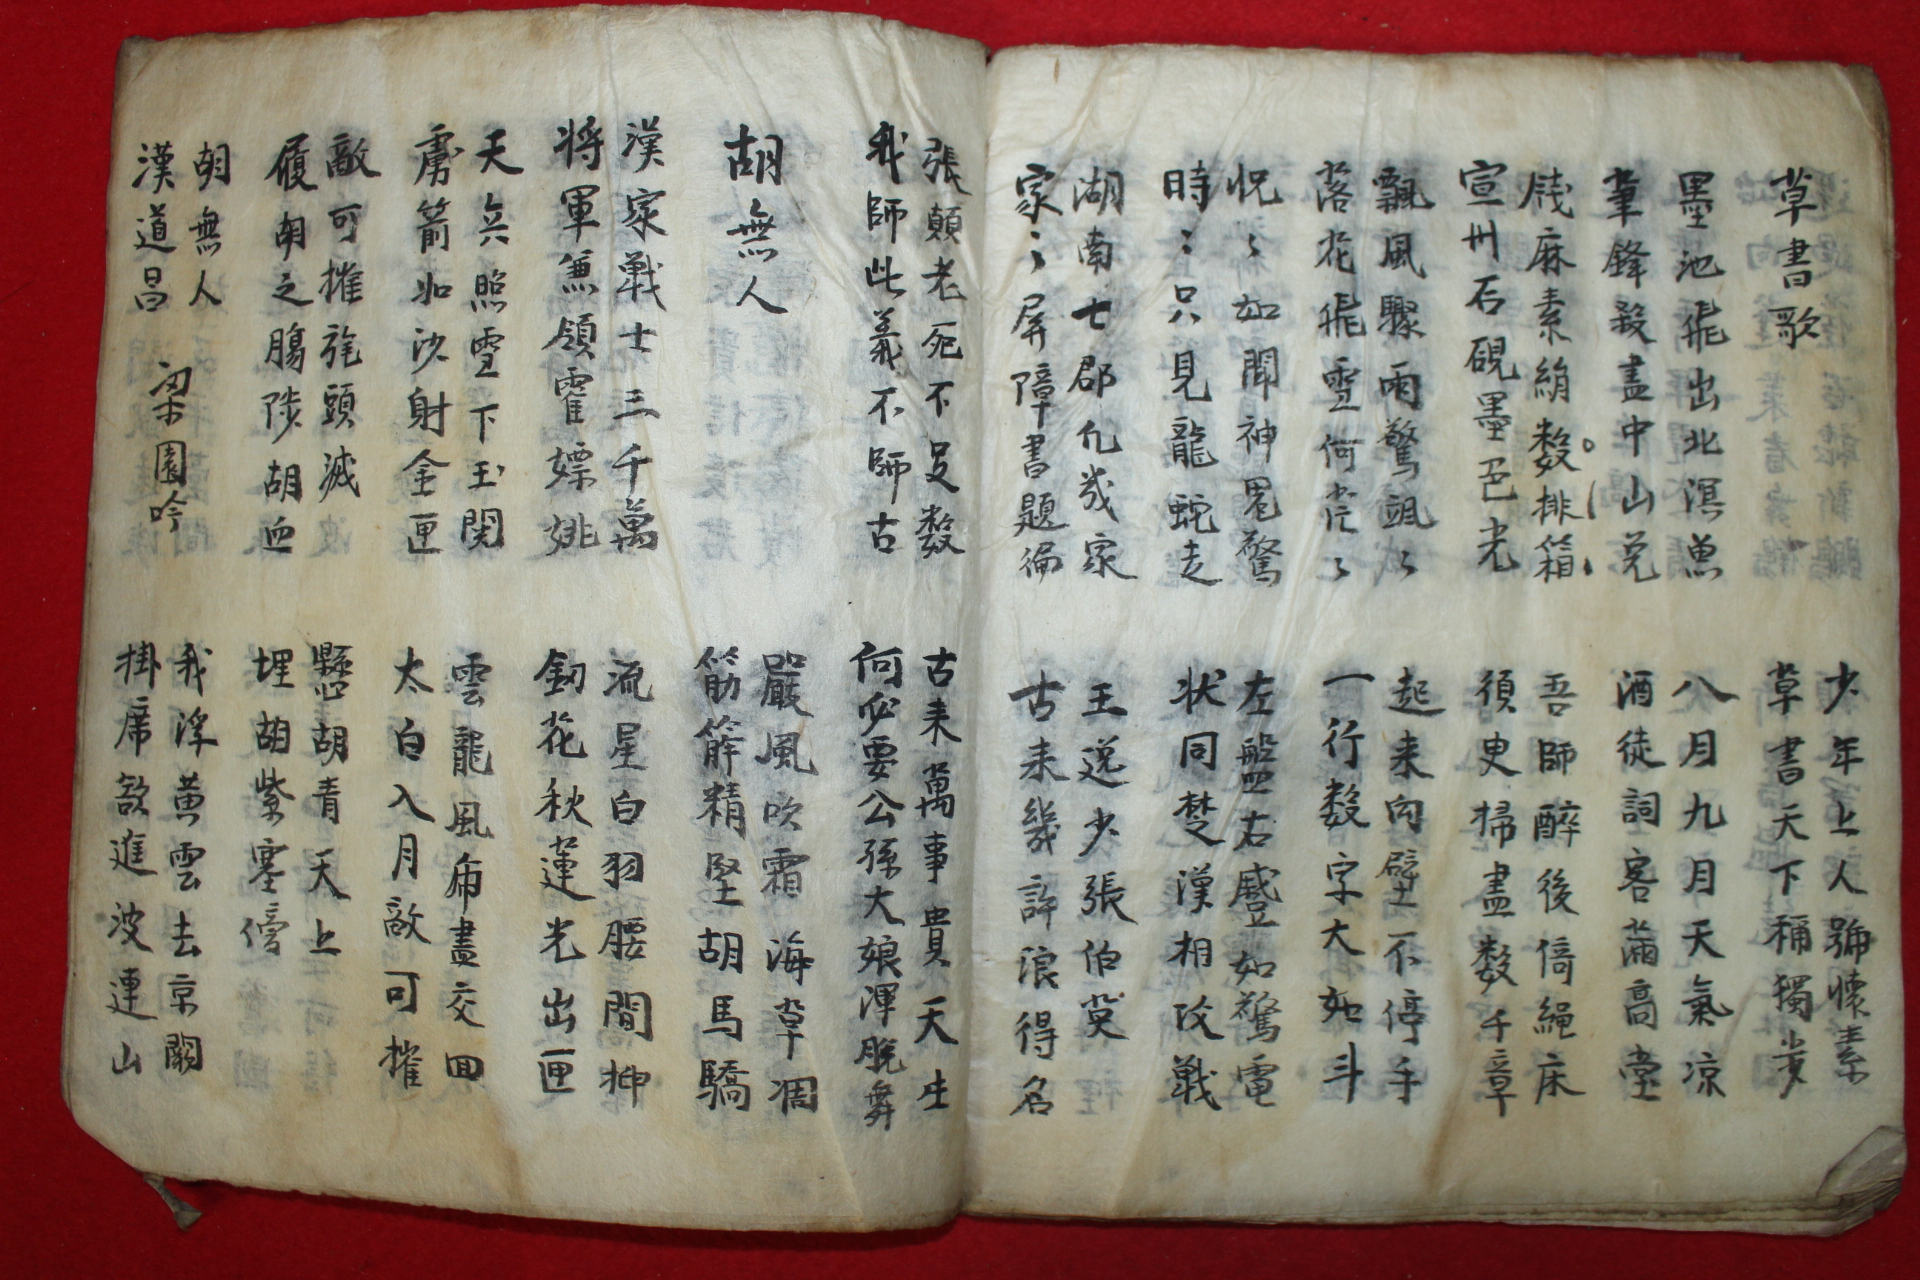 草書歌
少年上人號懷素
草書天下稱獨步
墨池飛出北溟魚
筆鋒殺盡中山兎
八月九月天氣凉
酒徒詞客滿高堂
牋麻素絹数排箱
宣州石硯墨色光
吾師醉後倚繩床
須臾掃盡数千章
飄風驟雨驚颯〻
落花飛雪何茫〻
起来向壁不停手
一行数字大如斗
怳〻如聞神鬼驚
時〻只見龍蛇走
左盤右蹙如驚電
状同楚漢相攻戰
湖南七郡凡幾家
家〻屏障書題徧
王逸少張伯英
古来幾許浪得名
張顛老死不足数
我師此義不師古
古来萬事貴天生
何必要公孫大娘渾脫舞
胡無人
嚴風吹霜海草凋
筋簳精堅胡馬驕
漢家戰士三千萬
将軍兼領霍嫖姚
流星白羽腰間挿
釰花秋蓮光出匣
天兵照雪下玉関
虜箭如沙射金匣
雲龍風虎盡交回
太白入月敵可摧
敵可摧旄頭滅
履胡之膓陟胡血
懸胡青天上
埋胡紫塞傍
胡無人
漢道昌
梁園吟
我浮黄雲去京闕
掛席欲進波連山